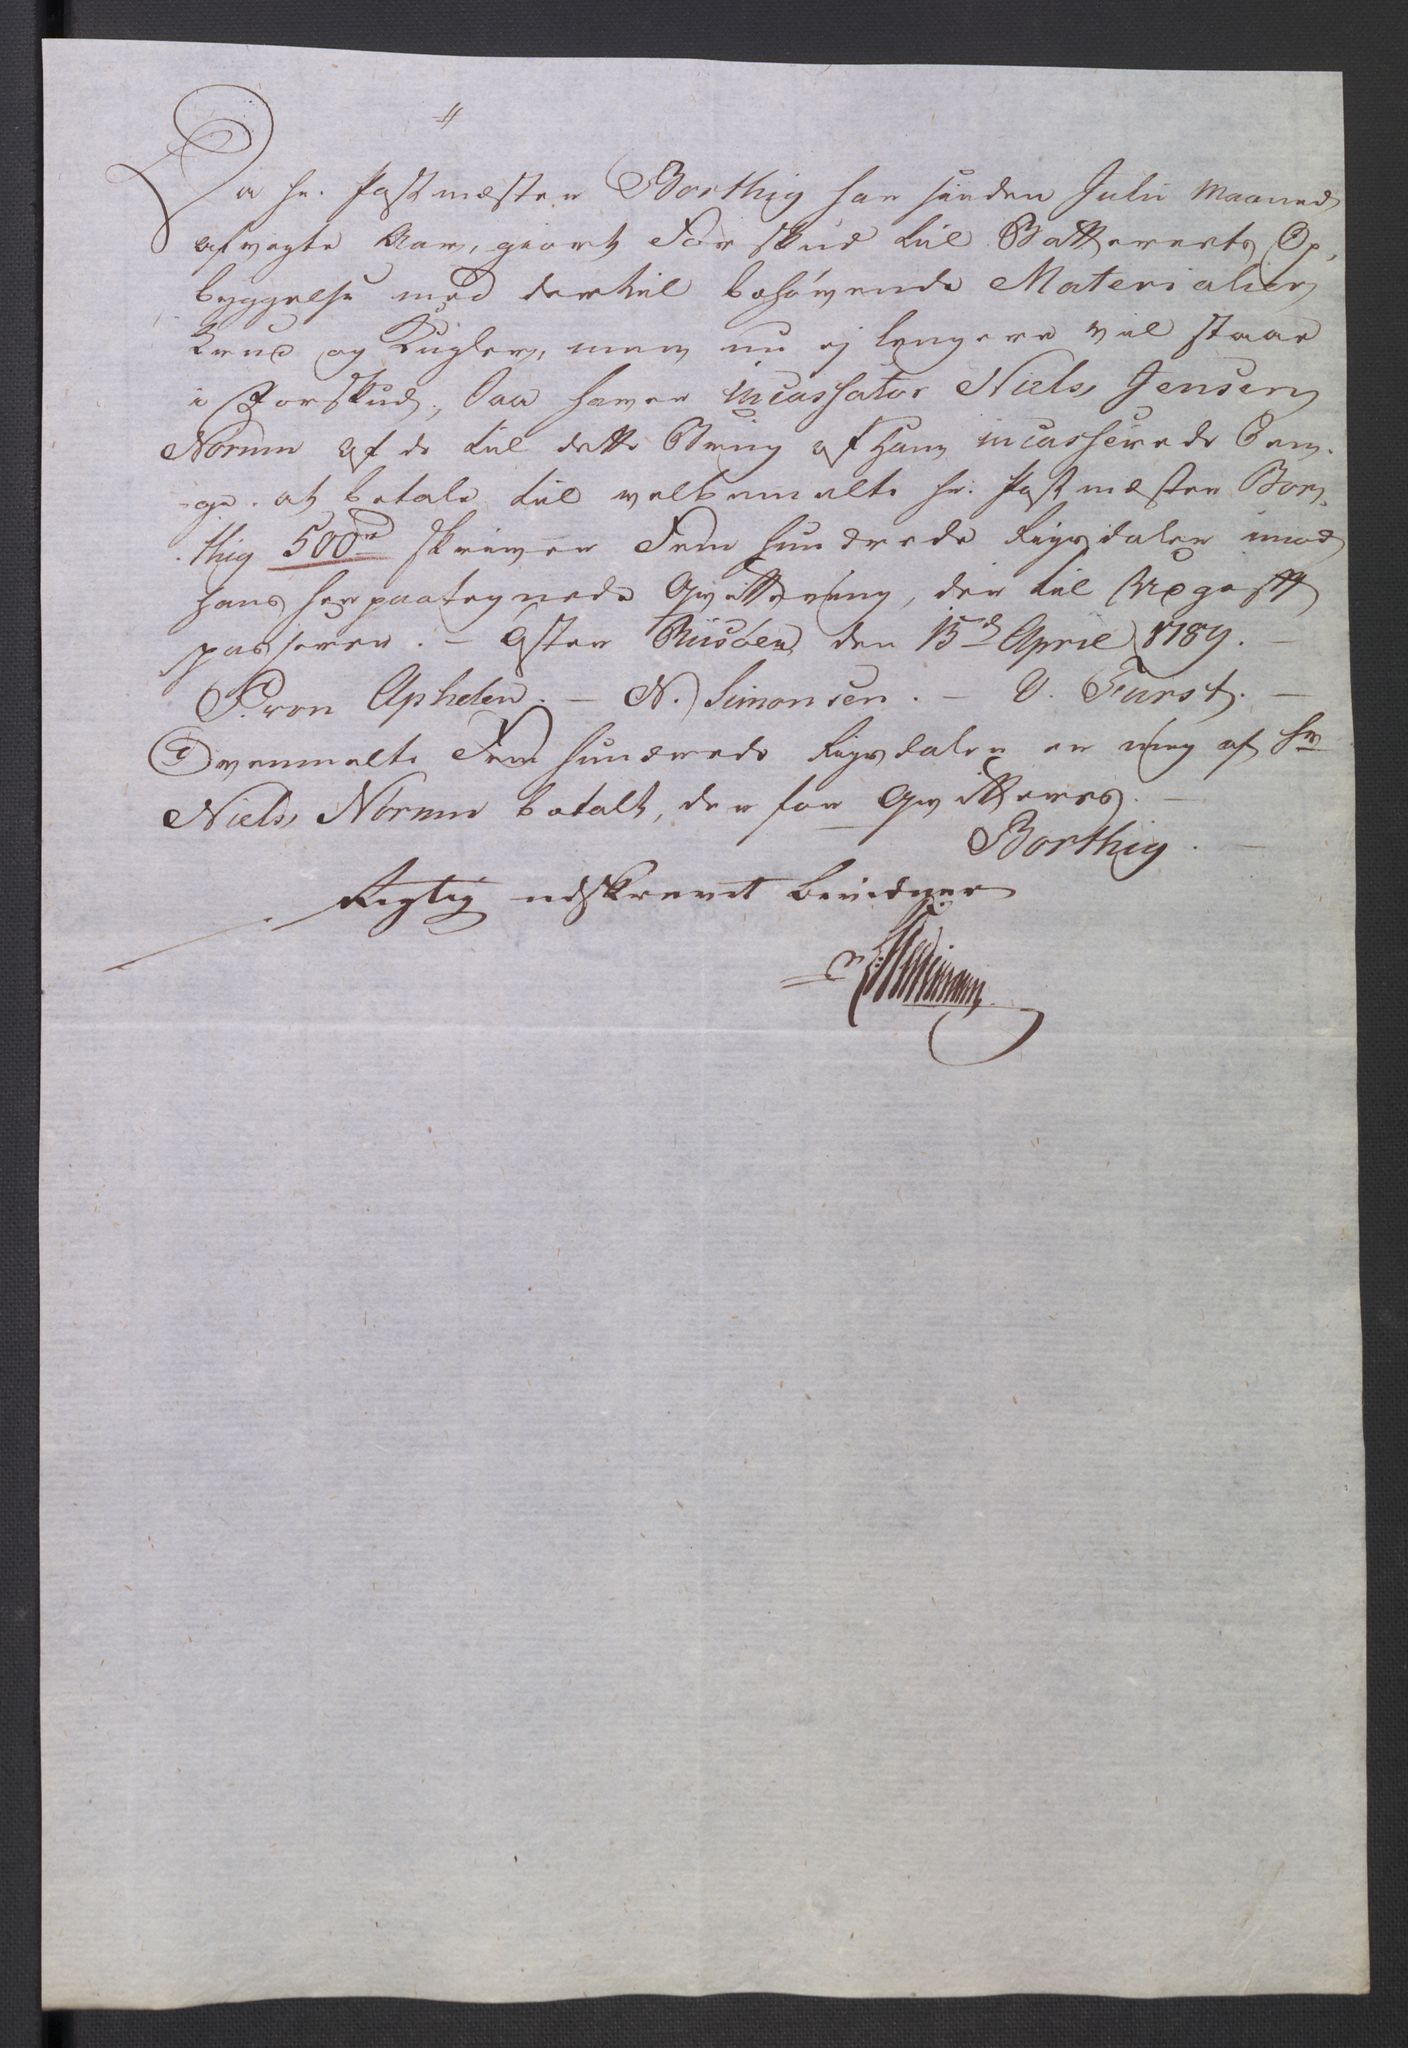 Da Hr. Postmæster Borthig har siden Julii Maaned
afvigte Aar, giort Forskud til Batteriets Op,
byggelse med dertil behøvende Materialier
Krud og Kugler, men nu ej lengere vil staae
i Forskud, Saa haver incassator Niels Jensen
Normin af de til dette Brug af ham incasserede Pen-
ge at betale til velbemelte Hr. Postmæster Bor-
thig 500rd skriver Fem Hundrede Rigsdaler imod
hans herpaategnede Qvittering, der til Udgift
passerer. - Øster Riisöer den 15de April 1789. -
P. von Aphelen. - N. Simonsen. - O. Furst. -
Ovenmelte Fem Hundrede Rigsdaler er mig af Hr
Niels Normin betalt, der for Qvitteres. -
Borthig. -
Rigtig udskrevet bevidner